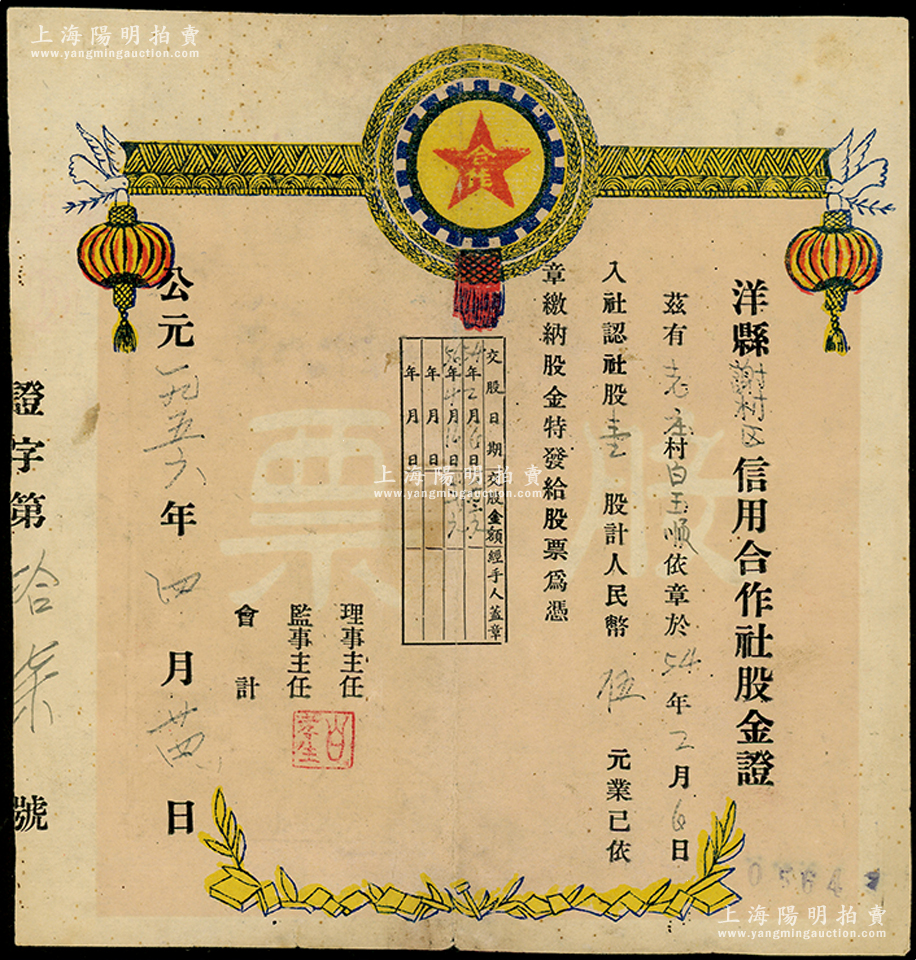 上海陽明拍賣
www.yangmingauction.com
合作
洋縣謝村区信用合作社股金證
茲有老庄村白玉順依章於54年二月6日
入社認社股壹股計人民幣伍元業已依
章繳納股金特發給股票爲憑
股票
交股日期 交股金額 經手人蓋章
54年2月6日
56年4月 日
年 月 日
年 月 日
上海陽明拍賣
www.yangmingauction.com
理事主任
監事主任
會計
公元一九五六年四月 日
證字第拾 號
0564
上海陽明拍賣
www.yangmingauction.com